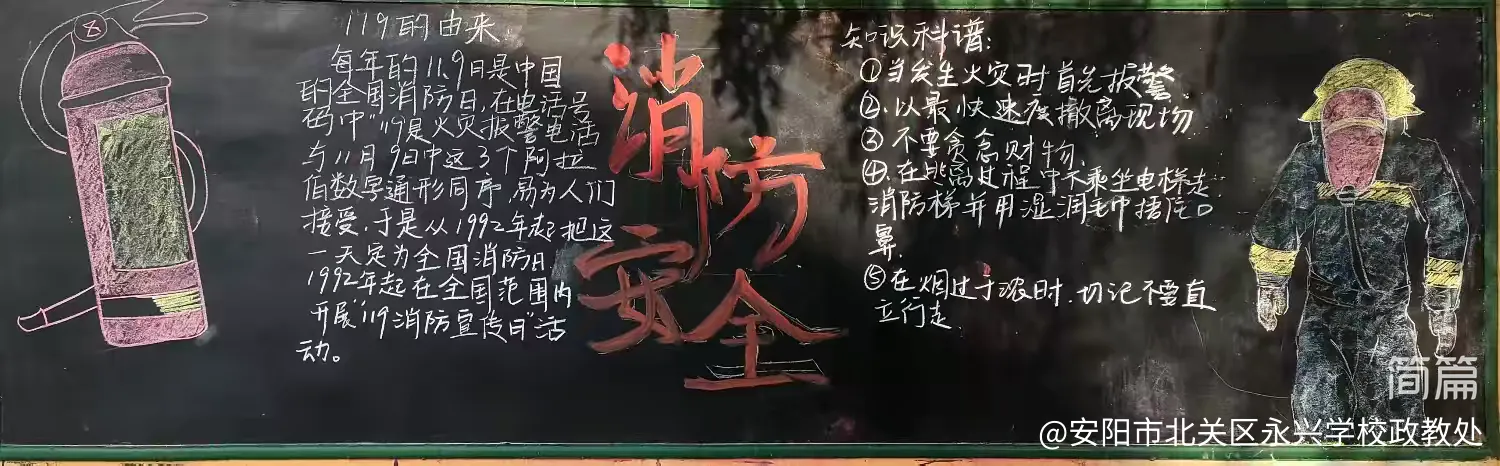 119的由来
每年的11.9日是中国
的全国消防日,在电话号
码中"119是火灾报警电话
与11月9日中这3个阿拉
伯数字通形同序,易为人们
接受,于是从1992年起把这
一天定为全国消防日
1992年起在全国范围内
开展"119消防宣传日"活
动。
消防
安全
知识科谱:
①当发生火灾时首先报警.
②.以最快速度撤离现场
③不要贪念财物.
④.在逃离过程中不乘坐电梯走
消防梯并用湿润毛巾捂住口
鼻.
⑤在烟过于浓时.切记不要直
立行走.
简篇
@安阳市北关区永兴学校政教处